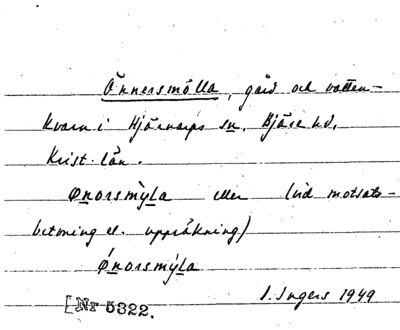 Önnersmölla, gård och vatten-
kvarn i Hjärnarps sn. Bjäre hd,
Krist. län.
Ønorsmỳla eller (vid motsats-
betoning el. uppräkning)
Ǿnorsmýla
I. Ingers 1949
[Nr 5322.